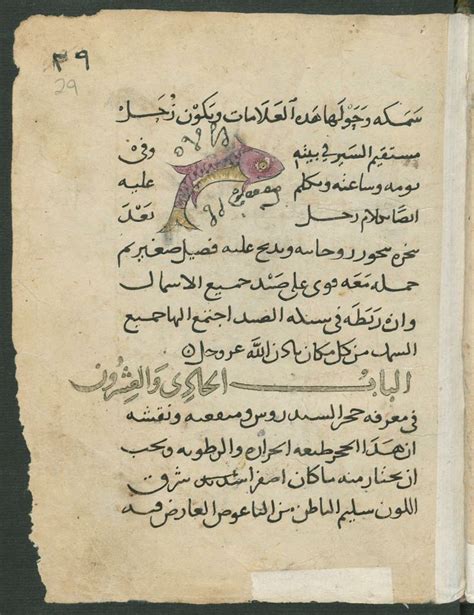 ٢٩
29
سمكه وحولها هذه العلامات ويكون زحل
مستقيم السير في بيته وفي
يومه وساعته ويكلم عليه
كلام زحل بعد
بخره ببخور روحانيه ويذبح عليه فصيل صغير ثم
حمله معه قوي على صيد جميع الاسماك
وان ربطه في سنكه الصيد اجتمع اليها جميع
السمك من كل مكان باذن الله عز وجل
الباب الحادي والعشرون
في معرفه حجر السندروس ومنفعته ونقشه
ان هذا الحجر طبعه الحراره والرطوبه ويجب
ان يختار منه ما كان اصفر شديد شرق
اللون سليم الباطن من الناعوض العارض فيه